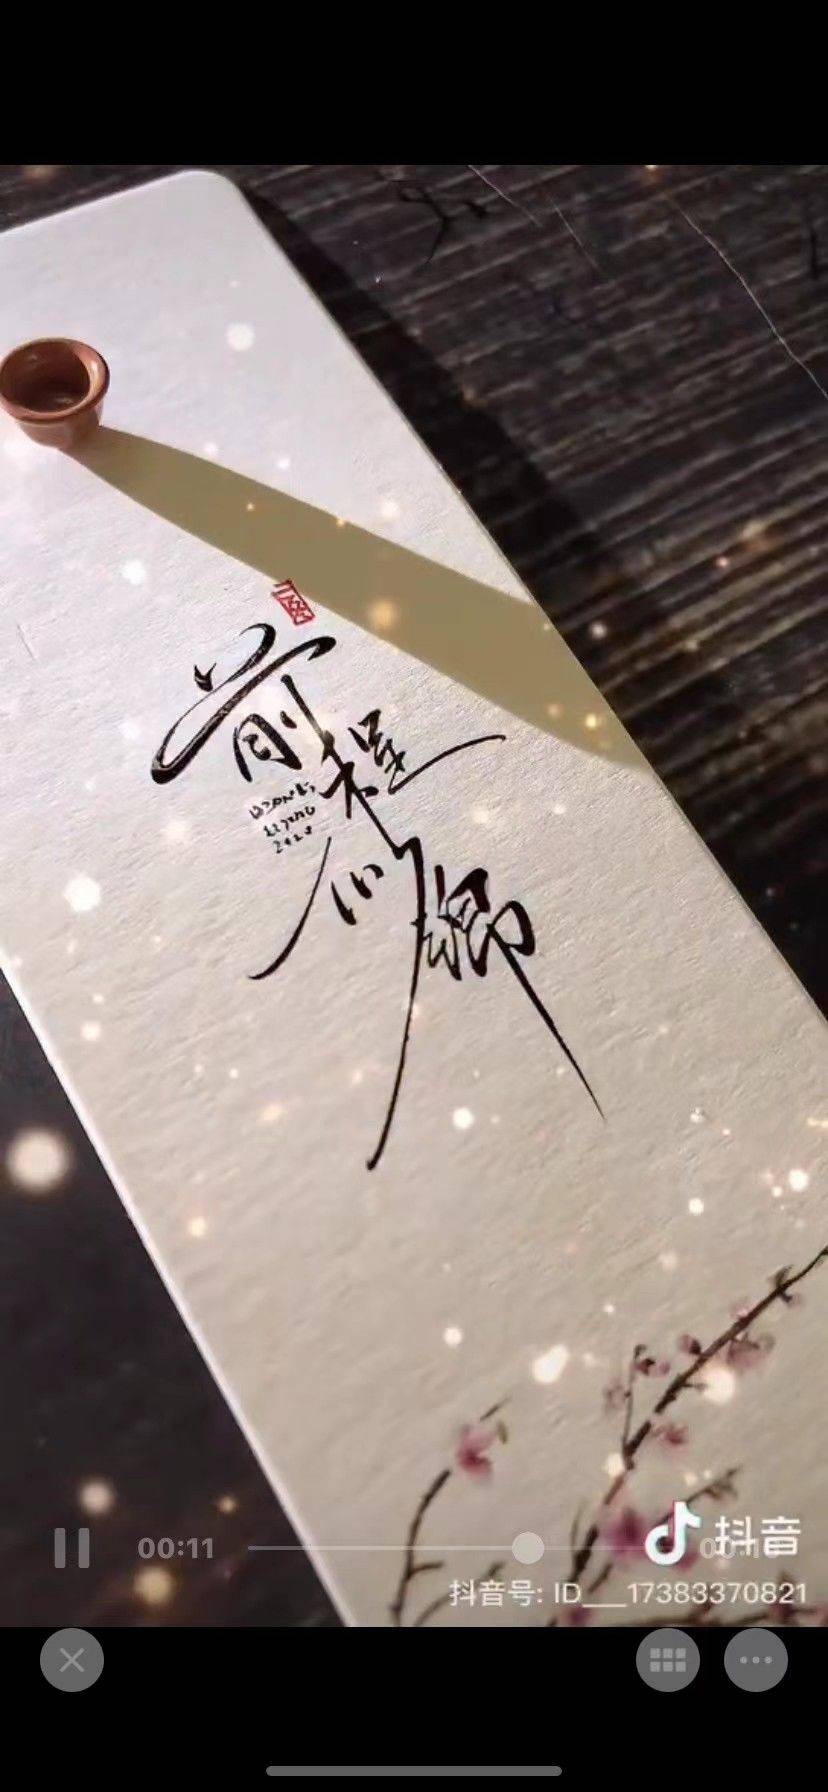 前程
似锦
00:11
抖音
抖音号: ID___17383370821